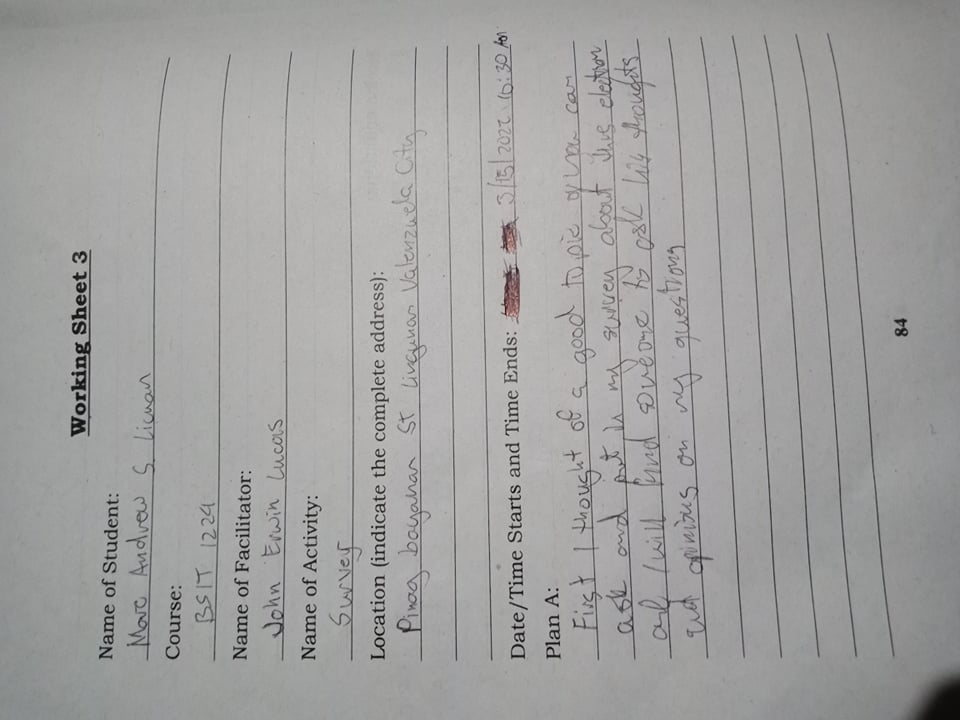 Working Sheet 3
Name of Student:
Marc Andrew S Licuan
Course:
BSIT 1224
Name of Facilitator:
John Erwin Lucas
Name of Activity:
Survey
Location (indicate the complete address):
Pinag bayanan St Lingunan Valenzuela City
Date/Time Starts and Time Ends: 3/15/2022 10:30 Am
Plan A:
First I thought of a good topic you can
ask and put in my survey about this election
and I will find someone to ask his thoughts
and opinions on my questions
84